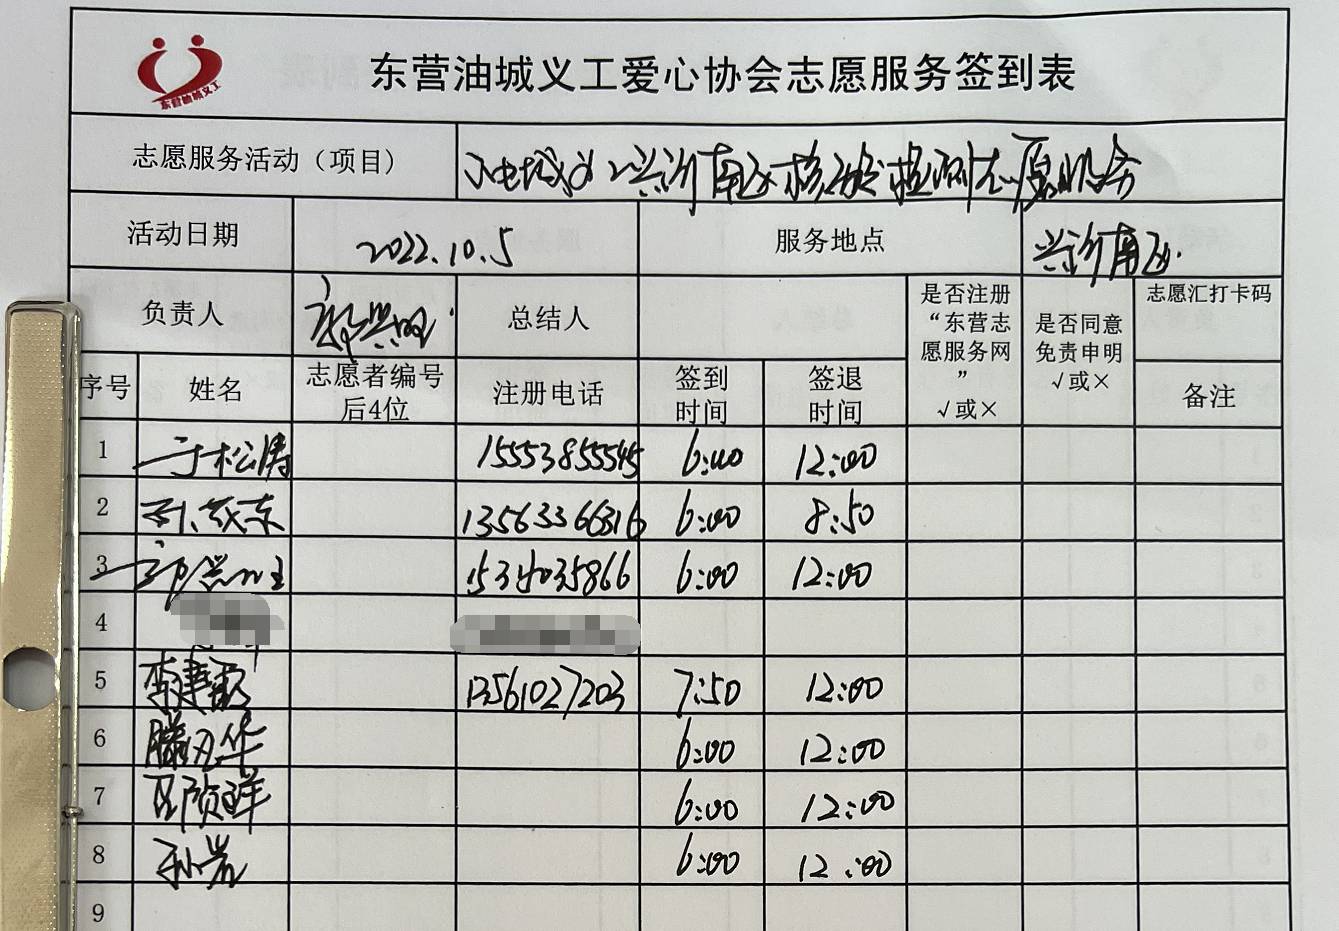 东营油城义工
东营油城义工爱心协会志愿服务签到表
志愿服务活动（项目） 油城义工兴沂南区核酸检测志愿服务
活动日期 2022.10.5 服务地点 兴沂南区
负责人 总结人
是否注册“东营志愿服务网” √或×
是否同意免责申明 √或×
志愿汇打卡码
备注
序号 姓名 志愿者编号后4位 注册电话 签到时间 签退时间
1 于松涛 15553855545 6:00 12:00
2 13563366316 6:00 8:50
3 1534035866 6:00 12:00
4
5 李建 13561027203 7:50 12:00
6 滕凡华 6:00 12:00
7 6:00 12:00
8 孙岩 6:00 12:00
9